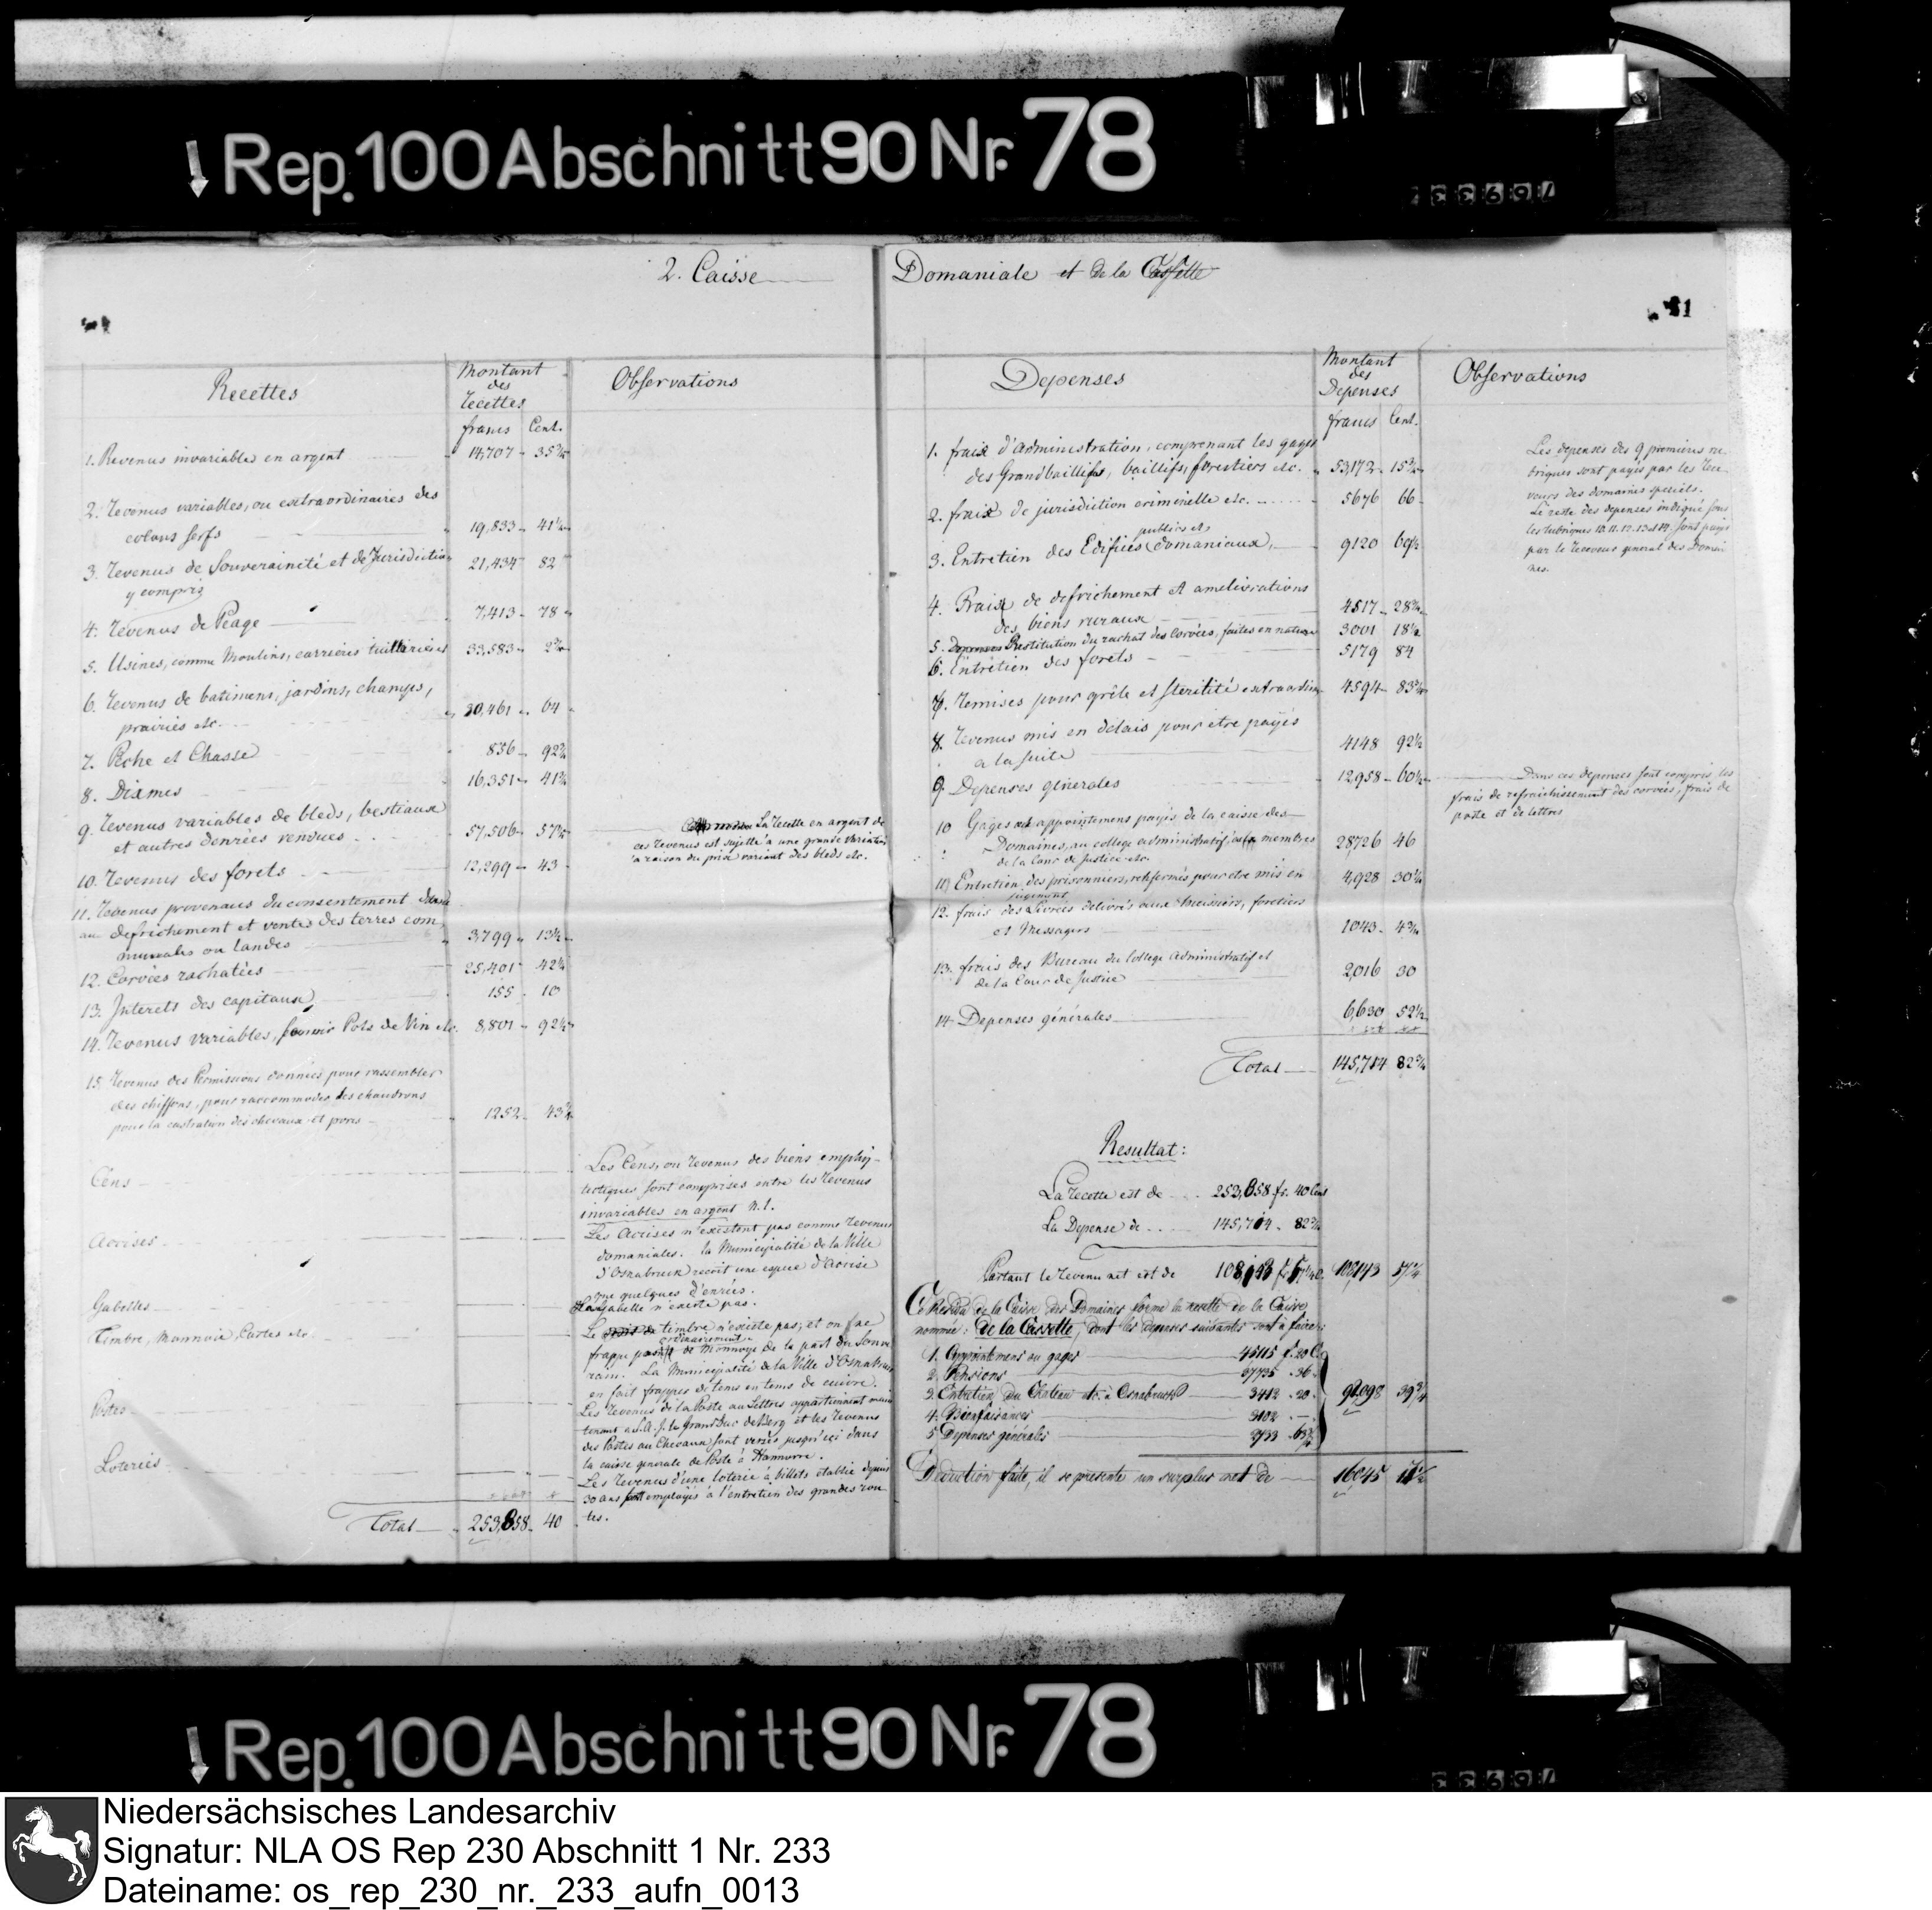 Rep. 100 Abschnitt 90 Nr. 78
2. Caisse Domaniale et de la Cassette
81
Recettes
Montant
des
recettes
francs Cent.
Observations
1. Revenus invariables en argent 14,707 35¾
2. Revenus variables, ou extraordinaires des
colons serfs 19,833 41¼
3. Revenus de Souveraineté et de Jurisdiction 21,434 82
y compris
4. Revenus de Peage 7,413 78
5. Usines, comme Moulins, carrieres tuilleries et 33,583 2¾
6. Revenus de batimens, jardins, champs,
prairies etc. 30,461 64
7. Pêche et Chasse 836 92¾
8. Dixmes 16,351 41¾
9. Revenus variables de bleds, bestiaux
et autres denrées vendues 57,506 57½
La recette en argent de
ces revenus est sujette à une grande variation
à raison du prix variant des bleds etc.
10. Revenus des forets 12,299 43
11. Revenus provenans du consentement
au defrichement et ventes des terres com
munales ou landes 3799 13½
12. Corvées rachatées 25,401 42¼
13. Interets des capitaux 155 10
14. Revenus variables, Pots de Vin etc. 8,801 92½
15. Revenus des Permissions données pour rassembler
des chiffons, pour raccommoder les chaudrons
pour la castration des chevaux et porcs 1252 43¾
Cens
Les Cens, ou revenus des biens emphy-
teotiques sont comprises entre les revenus
invariables en argent N. 1.
Accises
Les Accises n'existent pas comme revenus
domaniales. la Municipalité de la Ville
d'Osnabruck recoit une espece d'Accise
que quelques denrées.
Gabelles
La Gabelle n'existe pas.
Timbre, Monnoie, Cartes etc.
Le timbre n'existe pas; et on ne
ordinairement
frappe pas de Monnoye de la part du Souve
rain. La Municipalité de la Ville d'Osnabruck
en fait frapper de tems en tems de cuivre.
Postes
Les Revenus de la Poste aux Lettres appartiennent main
tenant a S. A. J. le Grand Duc de Berg et les revenus
des Postes aux Chevaux sont versés jusqu'ici dans
la caisse generale de Poste à Hannovre.
Loteries
Les Revenus d'une loterie à billets établie depuis
30 ans sont employés à l'entretien des grandes rou
tes.
Total 253,858 40
Depenses
Montant
des
Depenses
francs Cent.
Observations
1. frais d'administration, comprenant les gages
des Grandbaillifs, baillifs, forestiers etc. 53,172 15¾
2. frais de jurisdiction criminelle etc. 5676 66
publics et
3. Entretien des Edifices domaniaux, 9120 60½
4. Frais de defrichement et ameliorations
des biens ruraux 4517 28¾
5. Restitution du rachat des Corvées, faites en nature 3001 18½
6. Entretien des forets 5179 84
7. Remises pour grêle et sterilité extraordin. 4594 83¾
8. Revenus mis en délais pour être payés
a la suite 4148 92½
9. Depenses générales 12,958 60½
Les depenses des 9 premieres ru
briques sont payés par les rece
veurs des domaines speciels.
Le reste des depenses indiqué sous
les rubriques 10. 11. 12. 13 et 14. sont payés
par le Receveur general des Domai
nes.
Dans ces depenses sont compris les
frais de refraichissement des corvées, frais de
poste et de lettres
10 Gages et appointemens payés de la caisse des
Domaines, au college administratif, aux membres
de la Cour de Justice etc. 28,726 46
11) Entretien des prisonniers, renfermés pour etre mis en
jugement 4,928 30¾
12. frais des Livrées delivrés aux huissiers, foretiers
et Messagers 1043 4¾
13. frais des Bureau du College administratif et
de la Cour de Justice 2,016 30
14 Depenses générales 6,630 52½
Total 145,714 82¾
Resultat:
La recette est de 253,858 fr. 40 Cent
La Depense de 145,714 82¾
Partant le revenu net est de 108,143 fr 57¼ c. 108,143 57¼
Ce Residu de la Caisse des Domaines forme la recette de la Caisse
nommée: de la Cassette, dont les depenses suivantes sont à faire:
1. Appointemens ou gages 45115 f. 20 C.
2. Pensions 37735 36
3. Entretien du Chateau etc. à Osnabruck 3412 20
4. Bienfaisances 3102
5 Depenses générales 2733 63¾
92,098 39¾
Deduction faite, il se presente un surplus net de 16045 17½
Rep. 100 Abschnitt 90 Nr. 78
Niedersächsisches Landesarchiv
Signatur: NLA OS Rep 230 Abschnitt 1 Nr. 233
Dateiname: os_rep_230_nr._233_aufn_0013